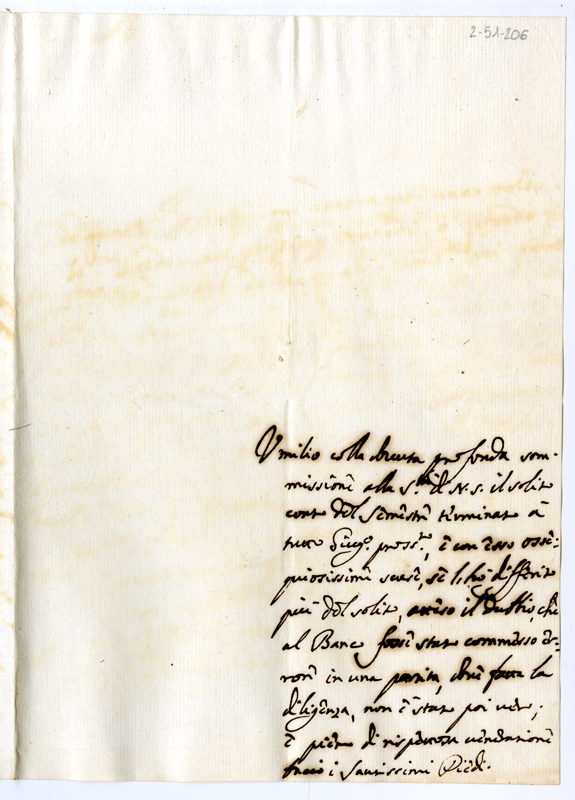 2-51-206
Umilio colla dovuta profonda som-
missione alla S.tà di N. S. il solito
conto del Semestre terminato à
tutto Giug.o pross.o, è con esso osse-
quiosissime scuse, se l'hò differito
più del solito, atteso il dubbio, che
al Banco fosse stato commesso er-
rore in una partita, dove fatta la
diligenza, non è stato poi vero;
è pieno di rispettosa venerazione
bacio i Santissimi Piedi.